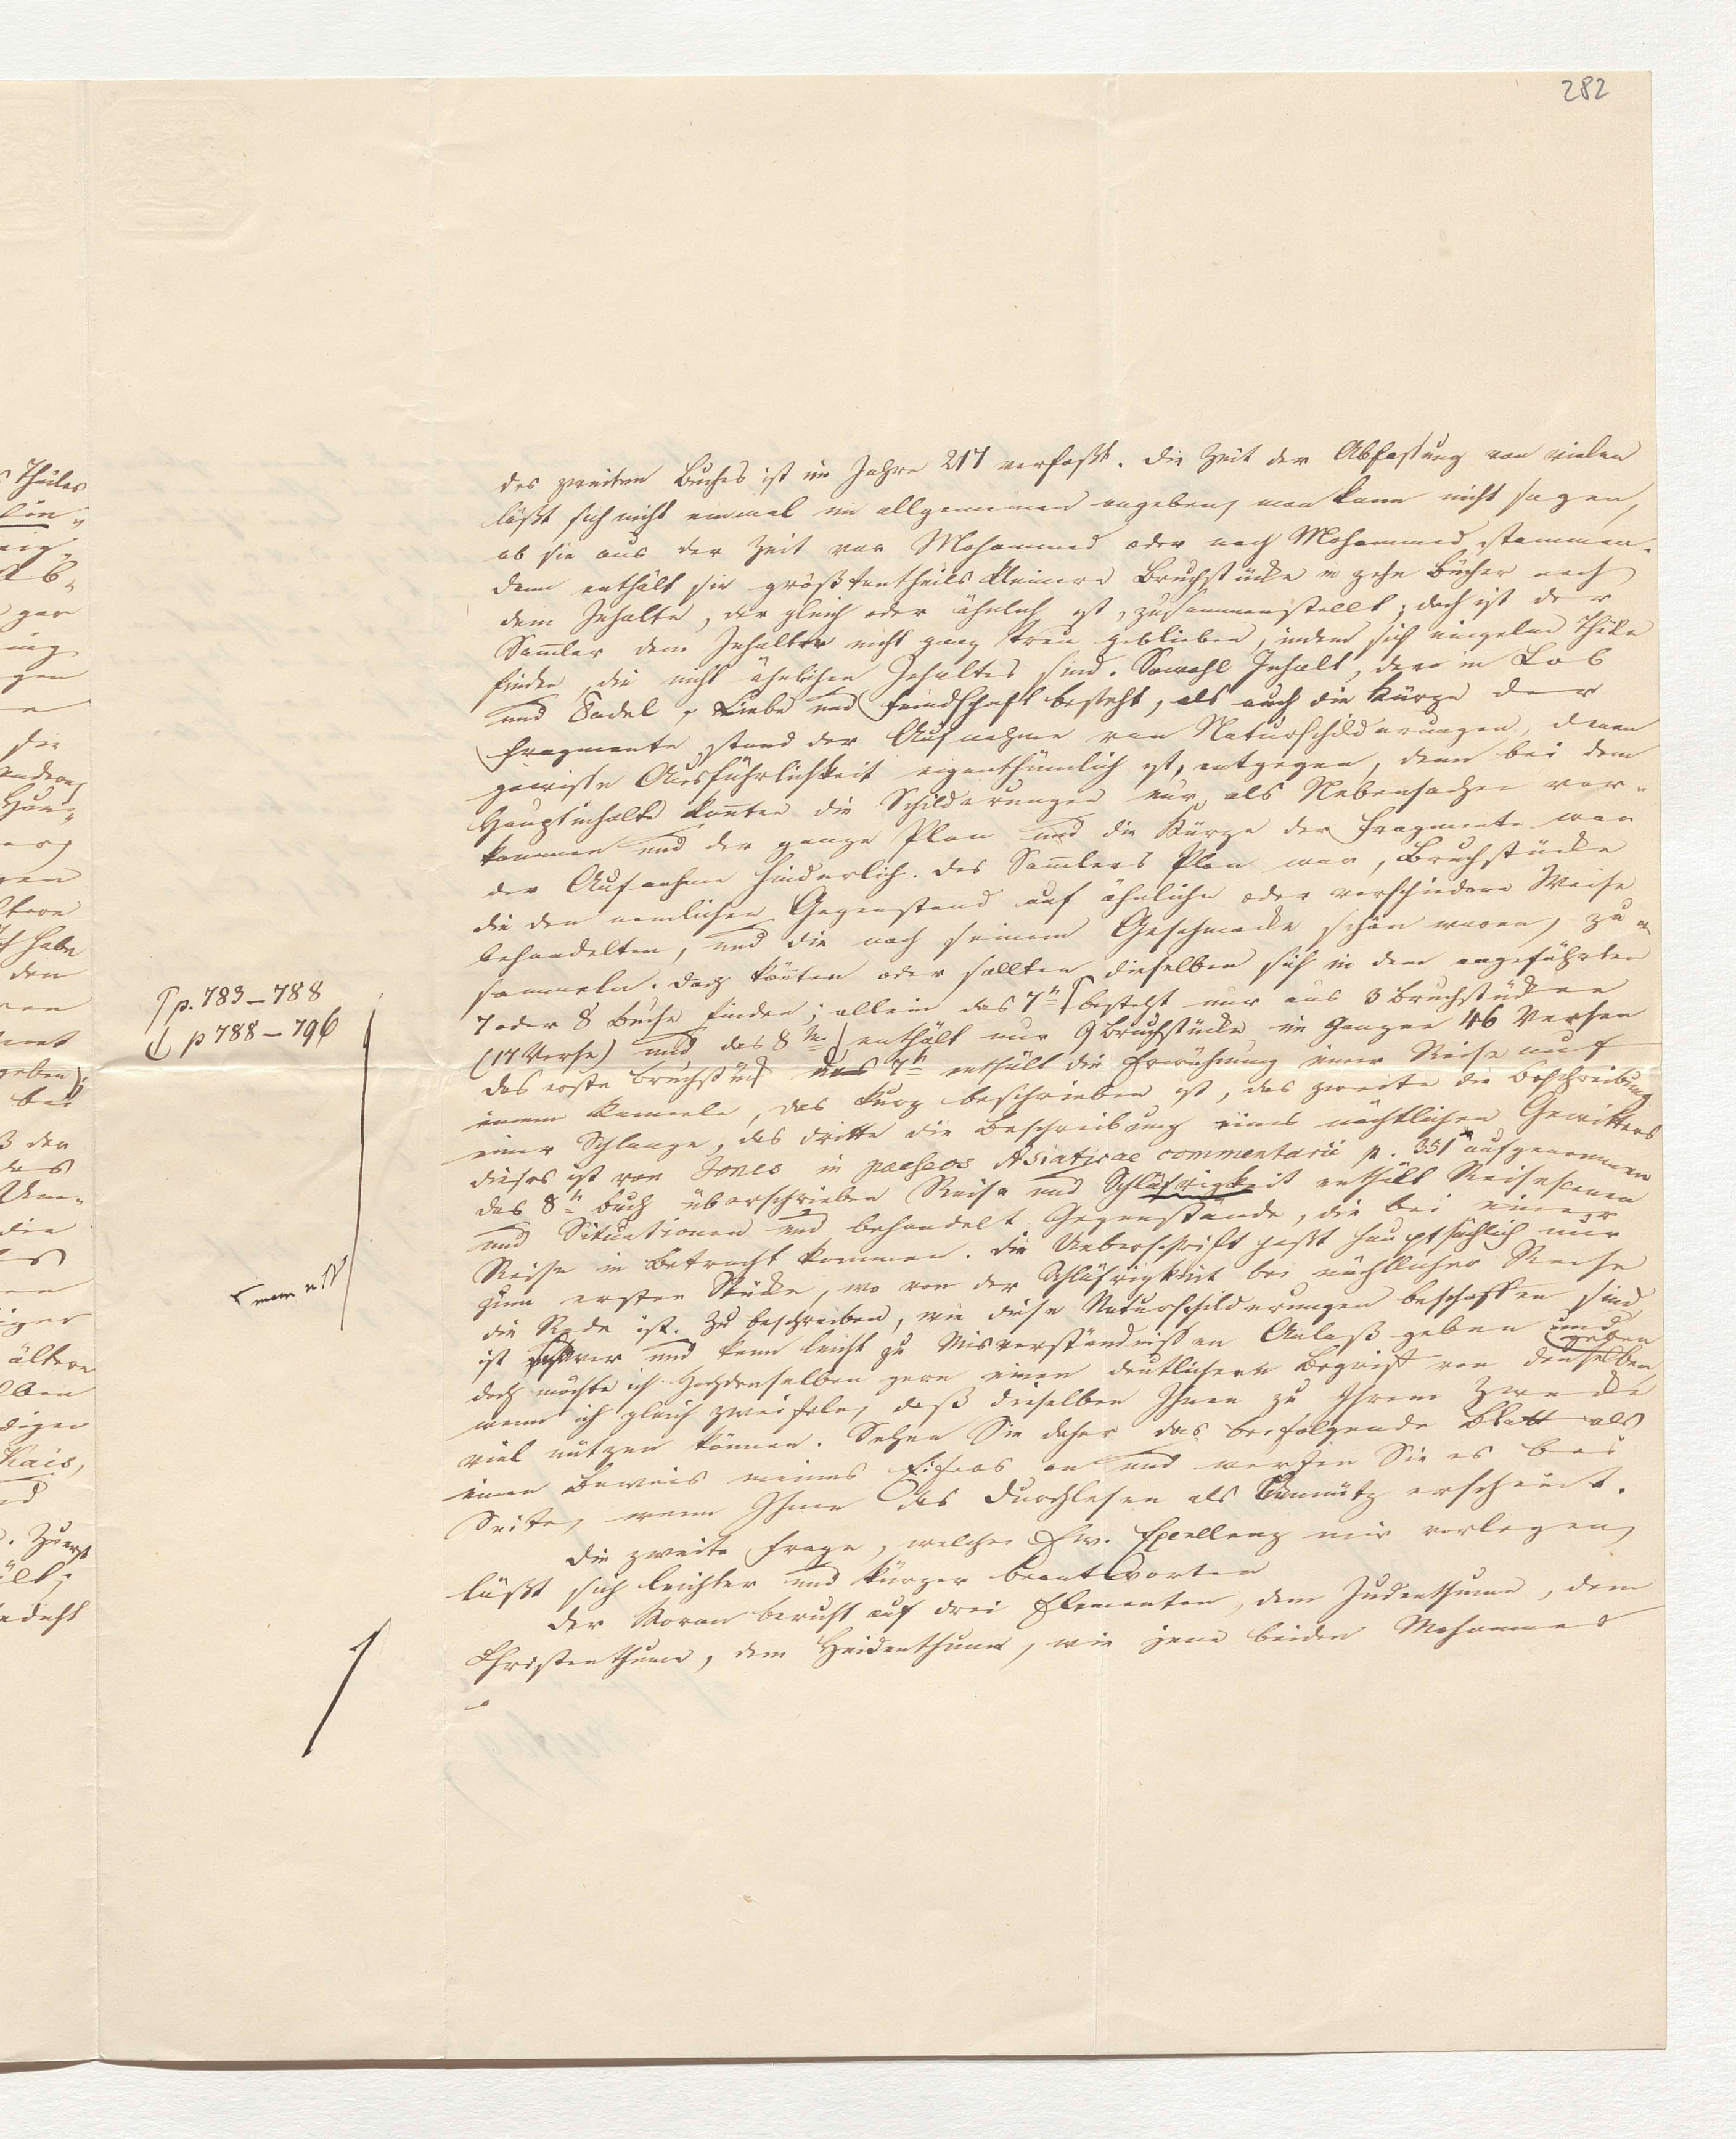 282
des zweiten Buches ist im Jahre 217 verfaßt. Die Zeit der Abfassung von vielen
läßt sich nicht einmal im allgemeinen angeben, man kann nicht sagen,
ob sie aus der Zeit vor Mohammed oder nach Mohammed stammen.
denn enthält sie größtentheils kleinere Bruchstücke in zehn Bücher nach
dem Inhalte, der gleich oder ähnlich ist, zusammenstellt; doch ist der
Samler dem Inhalte nicht ganz treu geblieben, indem sich einzelne Theile
finden, die nicht ähnlichen Inhaltes sind. Sowohl Inhalt, der in Lob
und Tadel, Liebe und Feindschaft besteht, als auch die Kürze der
Fragmente stand der Aufnahme von Naturschilderungen, denen
gewisse Ausführlichkeit eigenthümlich ist, entgegen, denn bei dem
Hauptinhalte konten die Schilderungen nur als Nebensachen vor-
kommen und der ganze Plan und die Kürze der Fragmente war
der Aufnahme hinderlich. Des Samlers Plan war, Bruchstücke
die den nemlichen Gegenstand auf ähnliche oder verschiedene Weise
behandelten, und die nach seinem Geschmacke schön waren, zu
sammeln. Doch könten oder sollten dieselben sich in dem angeführten
7 oder 8 Buche finden; allein das 7te besteht nur aus 3 Bruchstücken
p. 783–788
(17 Verse) und das 8te enthält nur 9 Bruchstücke im Ganzen 46 Versen
p 788–796
Das erste Bruchstück des 7n enthält die Erwähnung einer Reise auf
einem Kameele, das kurz beschrieben ist, das zweite die Beschreibung
einer Schlange, das dritte die Beschreibung eines nächtlichen Gewitters
dieses ist von Jones in poeseos Asiaticae commentarii p. 351 aufgenommen
das 8te Buch überschrieben Reise und Schläfrigkeit enthält Reisescenen
und Situationen und behandelt Gegenstände, die bei einer
Reise in Betracht kommen. Die Ueberschrift paßt hauptsächlich nur
zum ersten Stücke, wo von der Schläfrigkeit bei nächtlicher Reise
die Rede ist. Zu beschreiben, wie diese Naturschilderungen beschaffen sind
ist schwer und kann leicht zu Misverständnissen Anlaß geben und
doch möchte ich Hochdenselben gern einen deutlichern Begriff von denselben geben
wenn ich gleich zweifele, daß dieselben Ihnen zu Ihrem Zwecke
viel nützen können. Sehen Sie daher das beifolgende Blatt als
einen Beweis meines Eifers an und werfen Sie es bei
Seite, wenn Ihnen das Durchlesen als Unnütz erscheint.
Die zweite Frage, welche Ew. Excellenz mir vorlegen,
läßt sich leichter und kürzer beantworten
Der Koran beruht auf drei Elementen, dem Judenthume, dem
Christenthume, dem Heidenthume, wie jene beiden Mohammed